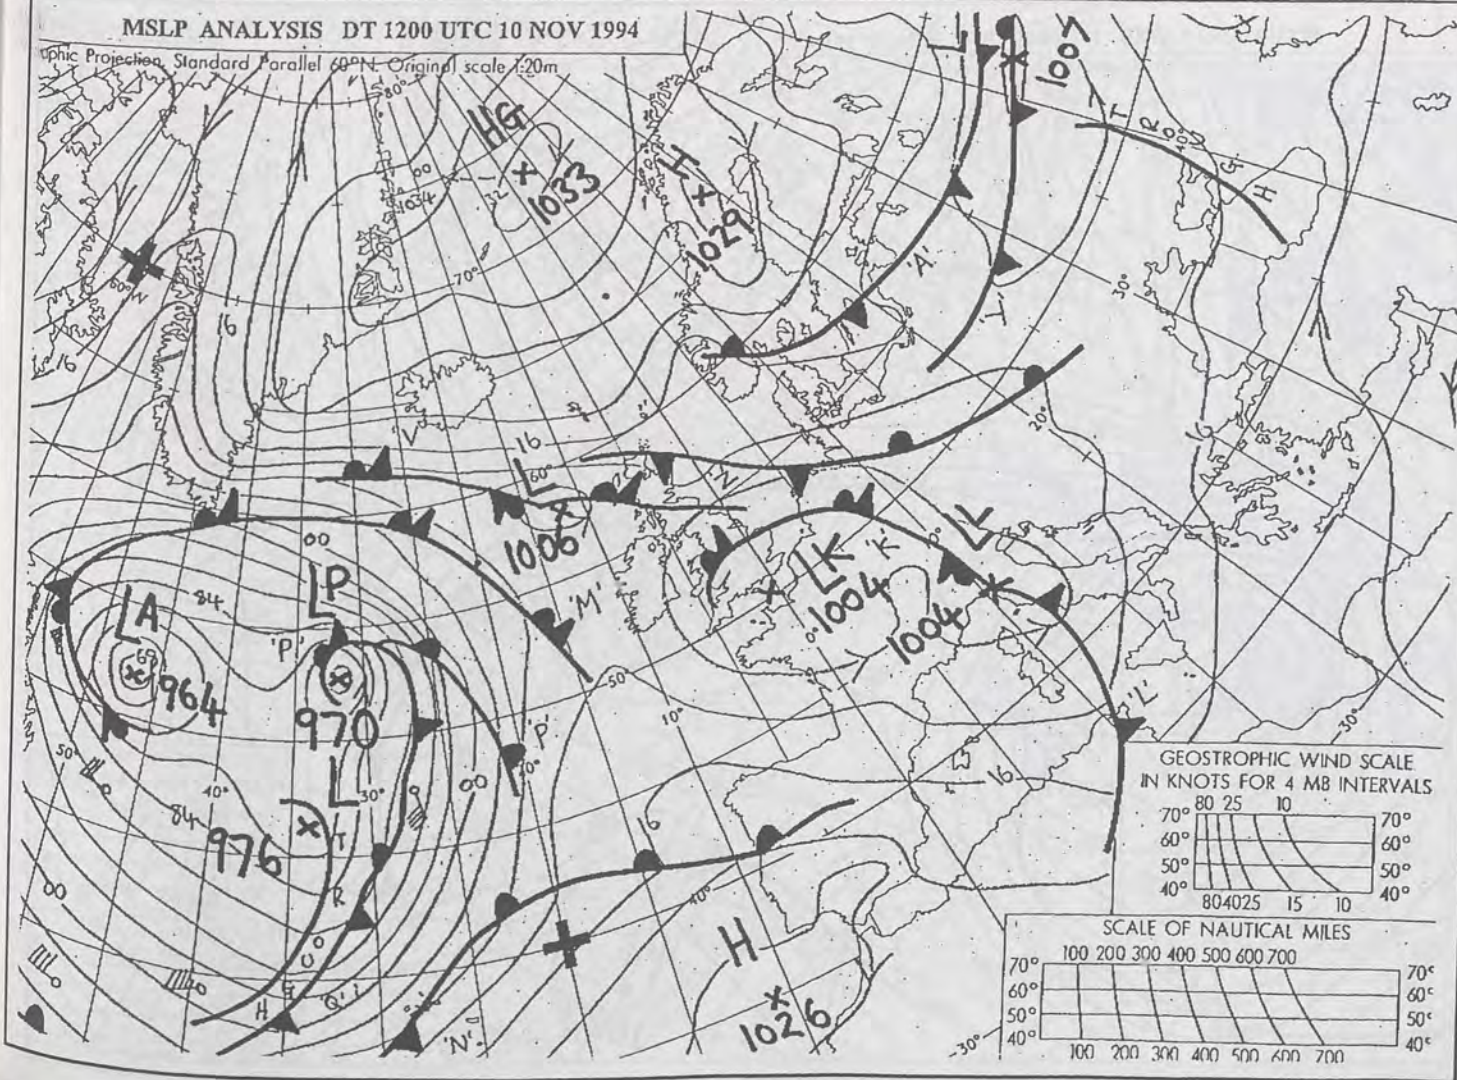 MSLP ANALYSIS DT 1200 UTC 10 NOV 1994
Projection, Standard Parallel 60°N. Original scale 1:20m
80°
HG
1033
1034
H
1029
L
1007
T R O U G H
40°
'A'
'T'
30°
60°W
16
16
70°
20°
'V'
16
L
60°
1006
'N'
00
LA
84
964
LP
'P'
970
L
976
84
'M'
LK
1004
'K'
0°
0°
LL
1004
50°
10°
'P'
20°
'L'
30°
50°
40°
30°
00
16
16
40°
00
T R O U G H
'Q'
'N'
H
1026
30°
GEOSTROPHIC WIND SCALE
IN KNOTS FOR 4 MB INTERVALS
80 25 10
70° 70°
60° 60°
50° 50°
40° 40°
80 40 25 15 10
SCALE OF NAUTICAL MILES
100 200 300 400 500 600 700
70° 70°
60° 60°
50° 50°
40° 40°
100 200 300 400 500 600 700